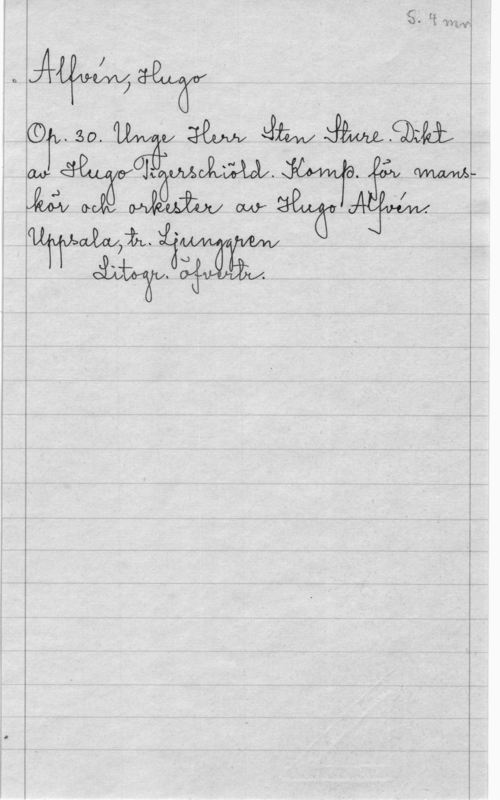 S. 4 mn
Alfvén, Hugo
Op. 30. Unge Herr Sten Sture. Dikt
av Hugo Tigerschiöld. Komp. för mans-
kör och orkester av Hugo Alfvén.
Uppsala, tr. Ljunggren
Litogr. öfvertr.